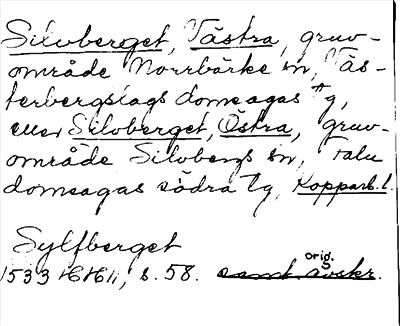 Silvberget, Västra, gruv-
område Norrbärke sn, Väs-
terbergslags domsagas tg,
eller Silvberget, Östra, gruv-
område Silvbergs sn, Falu
domsagas södra tg, Kopparb. l.
Sylfberget
1533 HH 11, s. 58. samt avskr.
orig.